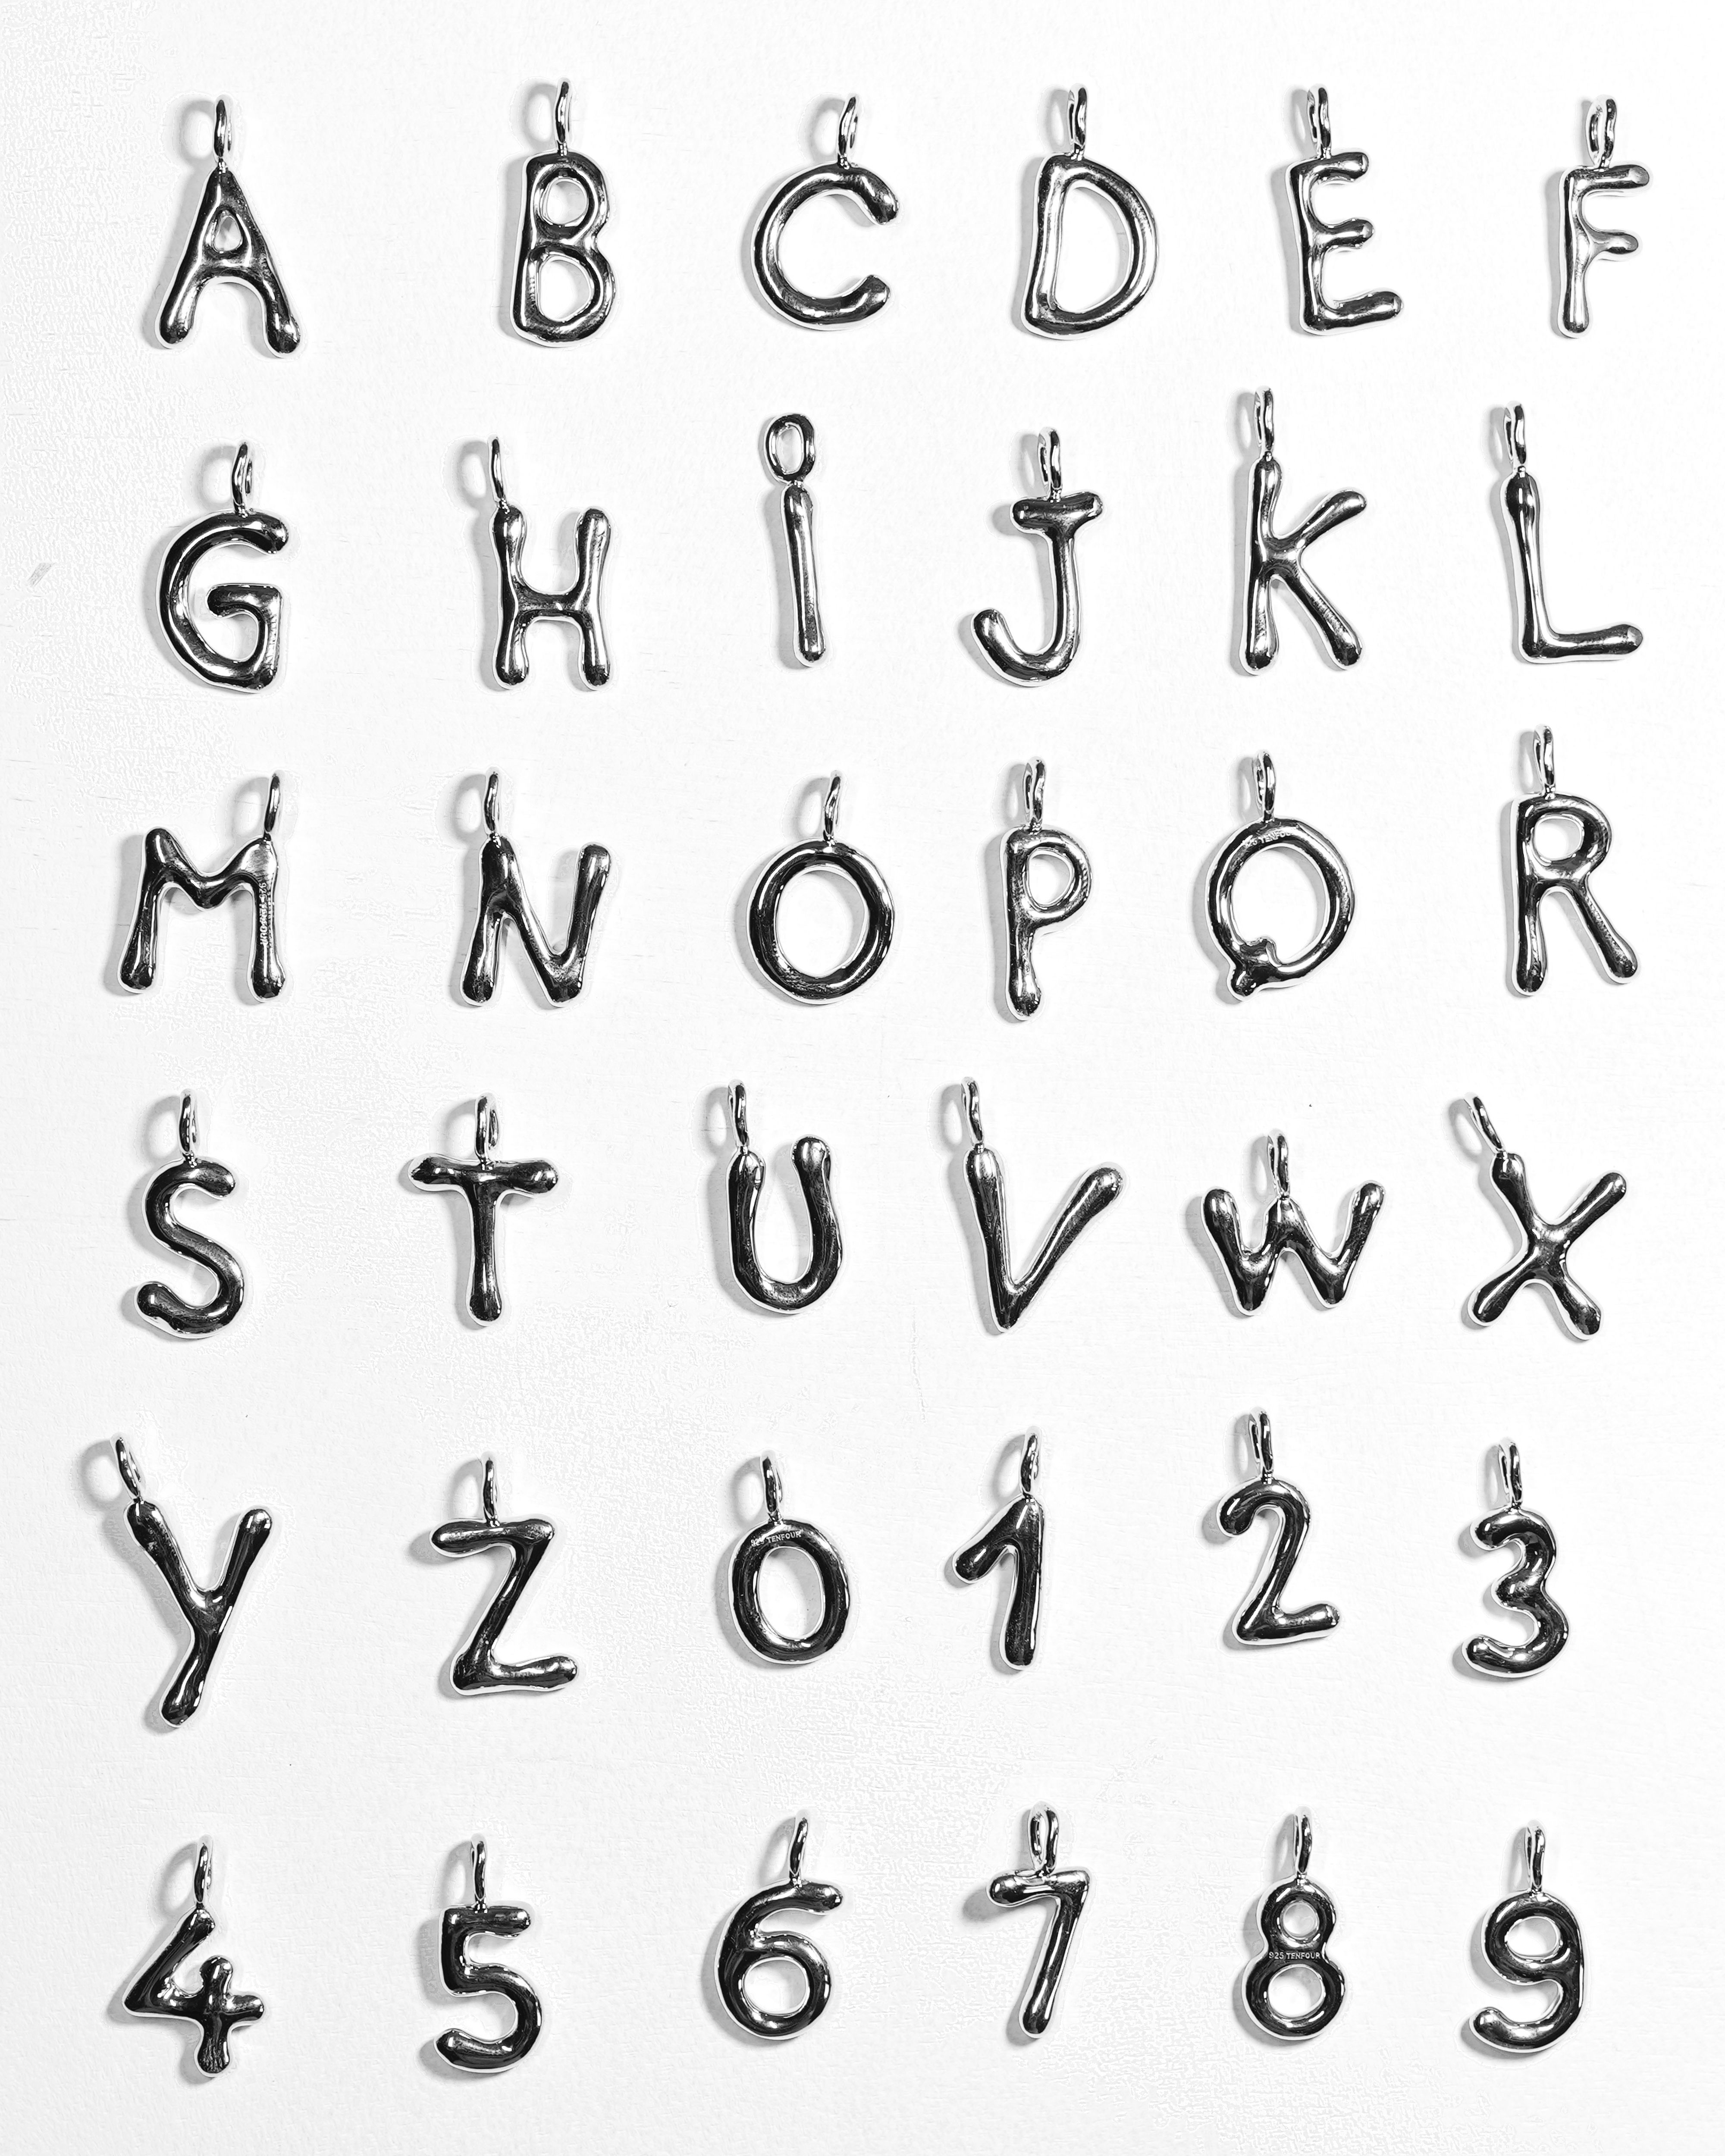 A B C D E F
G H i J K L
M N O P Q R
925 TENFOUR
925 TENFOUR
S T U V W X
Y Z 0 1 2 3
925 TENFOUR
4 5 6 7 8 9
925 TENFOUR